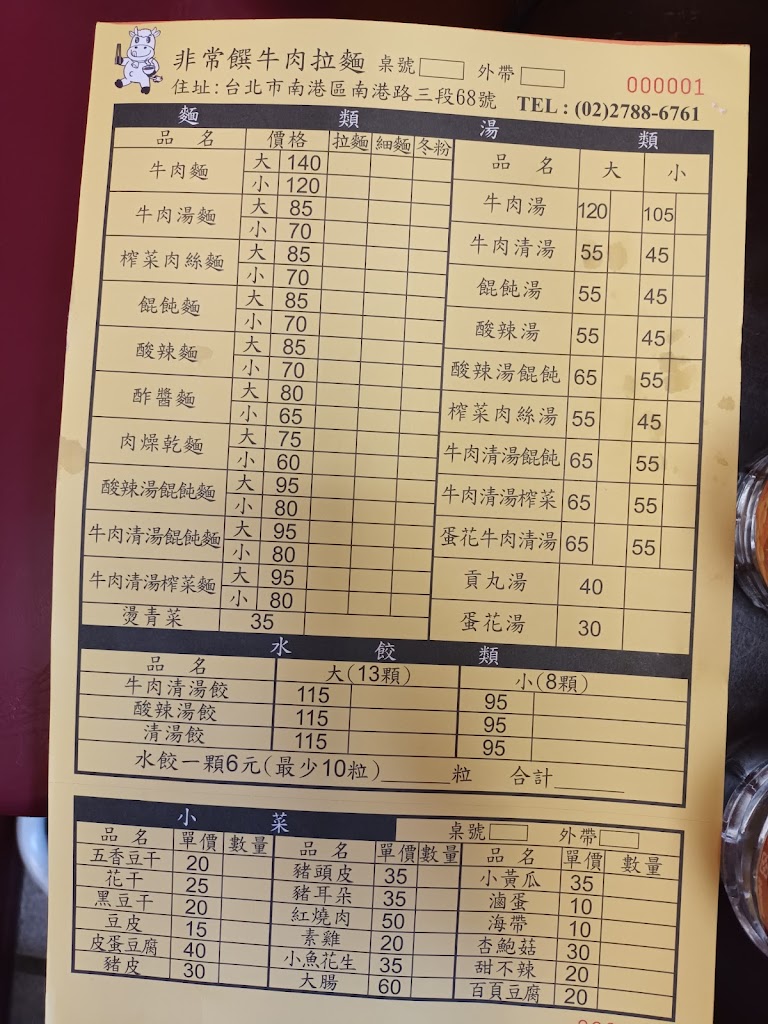 非常饌牛肉拉麵 桌號 外帶 000001
住址:台北市南港區南港路三段68號 TEL : (02)2788-6761
麵 類
品 名 價格 拉麵 細麵 冬粉
牛肉麵 大 140
小 120
牛肉湯麵 大 85
小 70
榨菜肉絲麵 大 85
小 70
餛飩麵 大 85
小 70
酸辣麵 大 85
小 70
酢醬麵 大 80
小 65
肉燥乾麵 大 75
小 60
酸辣湯餛飩麵 大 95
小 80
牛肉清湯餛飩麵 大 95
小 80
牛肉清湯榨菜麵 大 95
小 80
燙青菜 35
湯 類
品 名 大 小
牛肉湯 120 105
牛肉清湯 55 45
餛飩湯 55 45
酸辣湯 55 45
酸辣湯餛飩 65 55
榨菜肉絲湯 55 45
牛肉清湯餛飩 65 55
牛肉清湯榨菜 65 55
蛋花牛肉清湯 65 55
貢丸湯 40
蛋花湯 30
水 餃 類
品 名 大(13顆) 小(8顆)
牛肉清湯餃 115 95
酸辣湯餃 115 95
清湯餃 115 95
水餃一顆6元(最少10粒)______粒 合計______
小 菜 桌號 外帶
品 名 單價 數量 品 名 單價 數量 品 名 單價 數量
五香豆干 20 豬頭皮 35 小黃瓜 35
花干 25 豬耳朵 35 滷蛋 10
黑豆干 20 紅燒肉 50 海帶 10
豆皮 15 素雞 20 杏鮑菇 30
皮蛋豆腐 40 小魚花生 35 甜不辣 20
豬皮 30 大腸 60 百頁豆腐 20